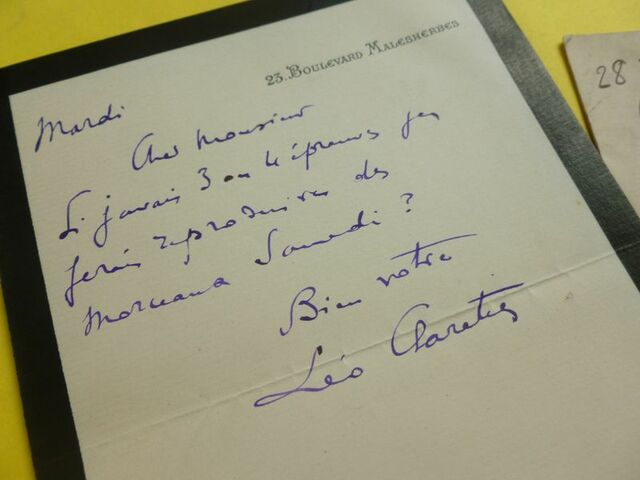 23. Boulevard Malesherbes
Mardi
Cher Monsieur
Si j'avais 3 ou 4 épreuves j'en
ferais reproduire des
morceaux Samedi ?
Bien votre
Léo Claretie
28